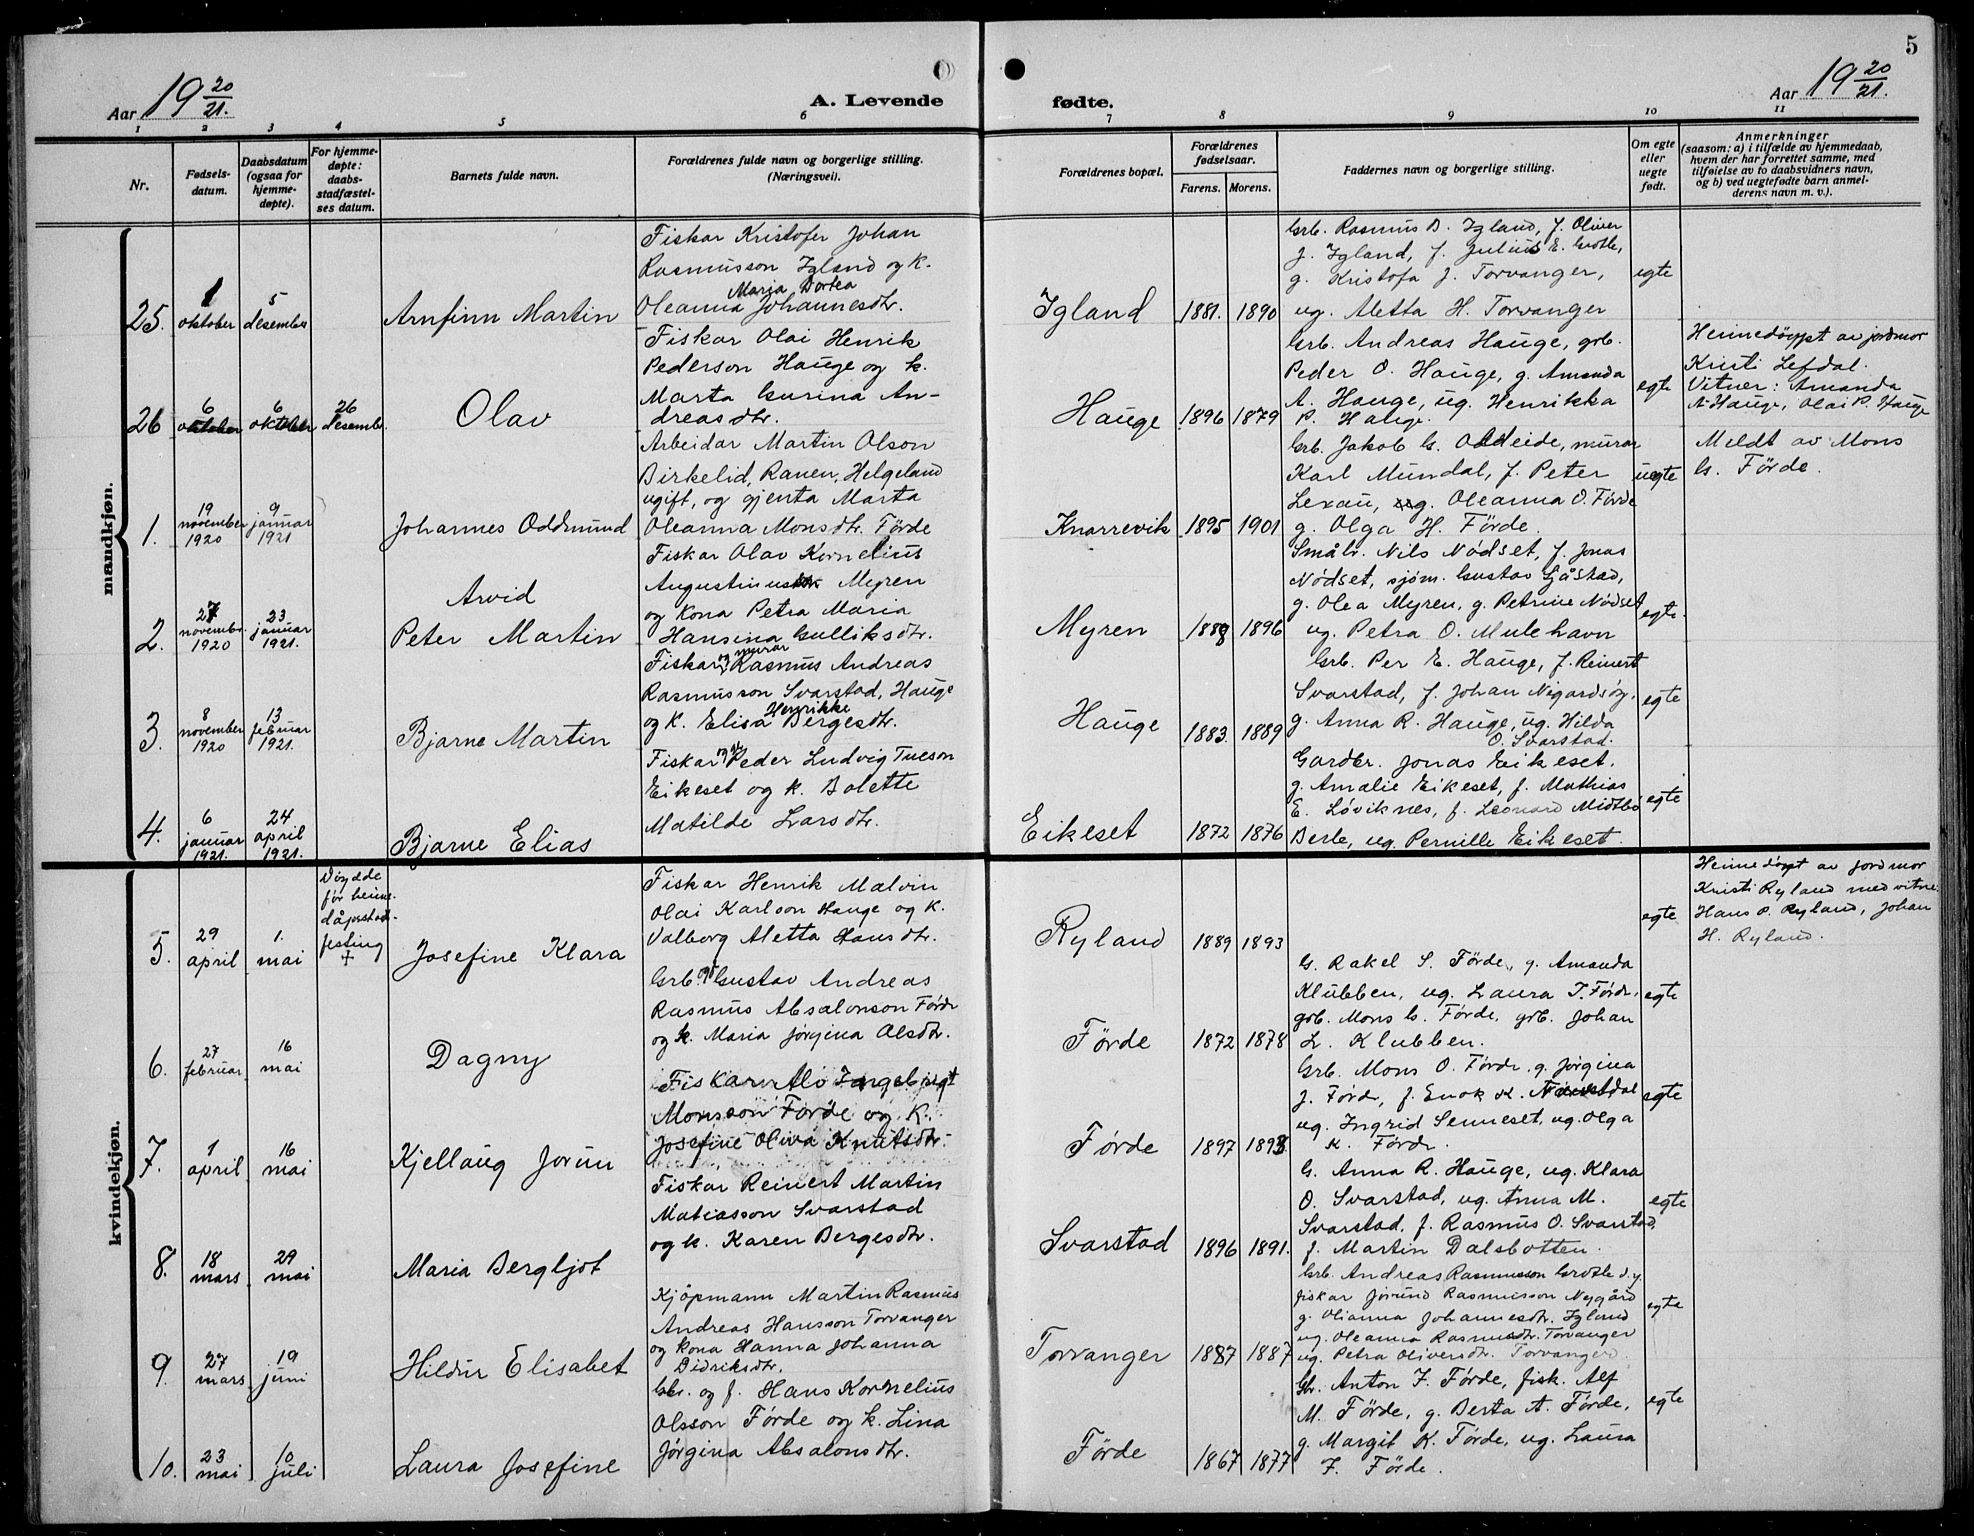 5
Aar 19 20/21.
A. Levende
fødte.
Aar 19 20/21.
1 2 3 4 5 6 7 8 9 10 11
Nr.
Fødsels-
datum.
Daabsdatum
(ogsaa for
hjemme-
døpte).
For hjemme-
døpte:
daabs-
stadfæstel-
ses datum.
Barnets fulde navn.
Forældrenes fulde navn og borgerlige stilling.
(Næringsvei).
Forældrenes bopæl.
Forældrenes
fødselsaar.
Farens. Morens.
Faddernes navn og borgerlige stilling.
Om egte
eller
uegte
født.
Anmerkninger
(saasom: a) i tilfælde av hjemmedaab,
hvem der har forrettet samme, med
tilføielse av to daabsvidners navn,
og b) ved uegtefødte barn anmel-
derens navn m. v.).
mandkjøn.
25.
1
oktober
5
desember
Arnfinn Martin
Fiskar Kristofer Johan
Rasmusson Igland og k.
Maria Dortea
Oleanna Johannesdtr.
Igland
1881. 1890
Grb. Rasmus D. Igland, f. Oliver
J. Igland, f. Julius E. Grotle,
g. Kristofa J. Torvanger,
ug. Aletta H. Torvanger
egte
26
6
oktober
6
oktober
26
desembr.
Olav
Fiskar Olai Henrik
Pederson Hauge og k.
Marta Gurina An-
dreasdtr.
Hauge
1896 1879
Grb. Andreas Hauge, grb.
Peder O. Hauge, g. Amanda
A. Hauge, ug. Henrikka
P. Hauge
egte
Heimedöypt av jordmor
Kristi Lefdal.
Vitner: Amanda
A. Hauge, Olai P. Hauge
1.
19
november
1920
9
januar
1921
Johannes Oddmund
Arbeidar Martin Olson
Birkelid, Ranen, Helgeland
ugift, og gjenta Marta
Oleanna Monsdtr. Förde
Knarrevik
1895 1901
Grb. Jakob G. Oldeide, murar
Karl Mundal, f. Peter
Lexau, ug. Oleanna O. Förde
g. Olga H. Förde.
uegte
Meldt av Mons
G. Förde.
2.
27
novembr.
1920
23
januar
1921.
Arvid
Peter Martin
Fiskar Olav Kornelius
Augustinus Myren
og kona Petra Maria
Hansina Gulliksdtr.
Myren
1888 1896
Småbr. Nils Nödset, f. Jonas
Nödset, sjöm. Gustav Sjåstad,
g. Olea Myren, g. Petrine Nödset
ug. Petra O. Mulehavn
egte.
3.
8
november
1920
13
februar
1921.
Bjarne Martin
og murar
Fiskar, Rasmus Andreas
Rasmusson Svarstad, Hauge
Henrikke
og k. Elisa Bergesdtr.
Hauge
1883. 1889
Grb. Per E. Hauge, f. Reinert
Svarstad, f. Johan Nigardsöy,
g. Anna R. Hauge, ug. Hilda
O. Svarstad.
egte
4.
6
januar
1921.
24
april
1921.
Bjarne Elias
Fiskar Peder Ludvig Tueson
Eikeset og k. Bolette
Matilde Larsdtr.
Eikeset
1872 1876
Gardbr. Jonas Eikeset,
g. Amalie Eikeset, f. Mathias
E. Løviknes, f. Leonard Midtbö
Berle, ug. Pernille Eikeset.
egte
kvindekjøn.
5.
29
april
1.
mai
Döydde
før heime-
dåpstad-
festing
+
Josefine Klara
Fiskar Henrik Malvin
Olai Karlson Hauge og k.
Valborg Aletta Hansdtr.
Ryland
1889 1893
egte
Heimedöypt av jordmor
Kristi Ryland med vitne:
Hans P. Ryland, Johan
H. Ryland.
6.
27
februar
16
mai
Dagny
Grb. Gustav Andreas
Rasmus Absalonson Förde
og k. Maria Jørgina Olsdtr.
Förde
1872 1878
G. Rakel S. Förde, g. Amanda
Klubben, ug. Laura T. Förde,
grb. Mons G. Förde, grb. Johan
L. Klubben.
egte
7.
1
april
16
mai
Kjellaug Jorun
Monsson Førde og k.
Josefine Oliva Knutsdtr.
Førde
1897 1893
Grb. Mons O. Förde, g. Jørgina
J. Förde, f. Enok K.
ug. Ingrid Senneset, ug. Olga
K. Förde.
egte
8.
18
mars
29
mai
Maria Bergljot
Fiskar Reinert Martin
Matiasson Svarstad
og k. Karen Bergesdtr.
Svarstad
1896 1891.
G. Anna R. Hauge, ug. Klara
O. Svarstad, ug. Anna M.
Svarstad, f. Rasmus O. Svarstad,
f. Martin Dalsbotten.
egte
9.
27
mars
19
juni
Hildur Elisabet
Kjöpmann Martin Rasmus
Andreas Hansson Torvanger
og kona Hanna Johanna
Didriksdtr.
Torvanger
1887 1887
Grb. Andreas Rasmusson Grotle d.y.
fiskar Jørund Rasmusson Nygård
g. Olianna Johannesdtr. Igland
ug. Oleanna Rasmusdtr. Torvanger
ug. Petra Oliversdtr. Torvanger.
egte
10.
23
mai
10
juli
Laura Josefine
Gbr. og f. Hans Kornelius
Olsson Førde og k. Lina
Jørgina Absalonsdtr.
Førde
1867 1877
Gbr. Anton J. Førde, fisk. Alf
M. Förde, g. Berta A. Førde,
g. Margit K. Førde, ug. Laura
J. Førde.
egte